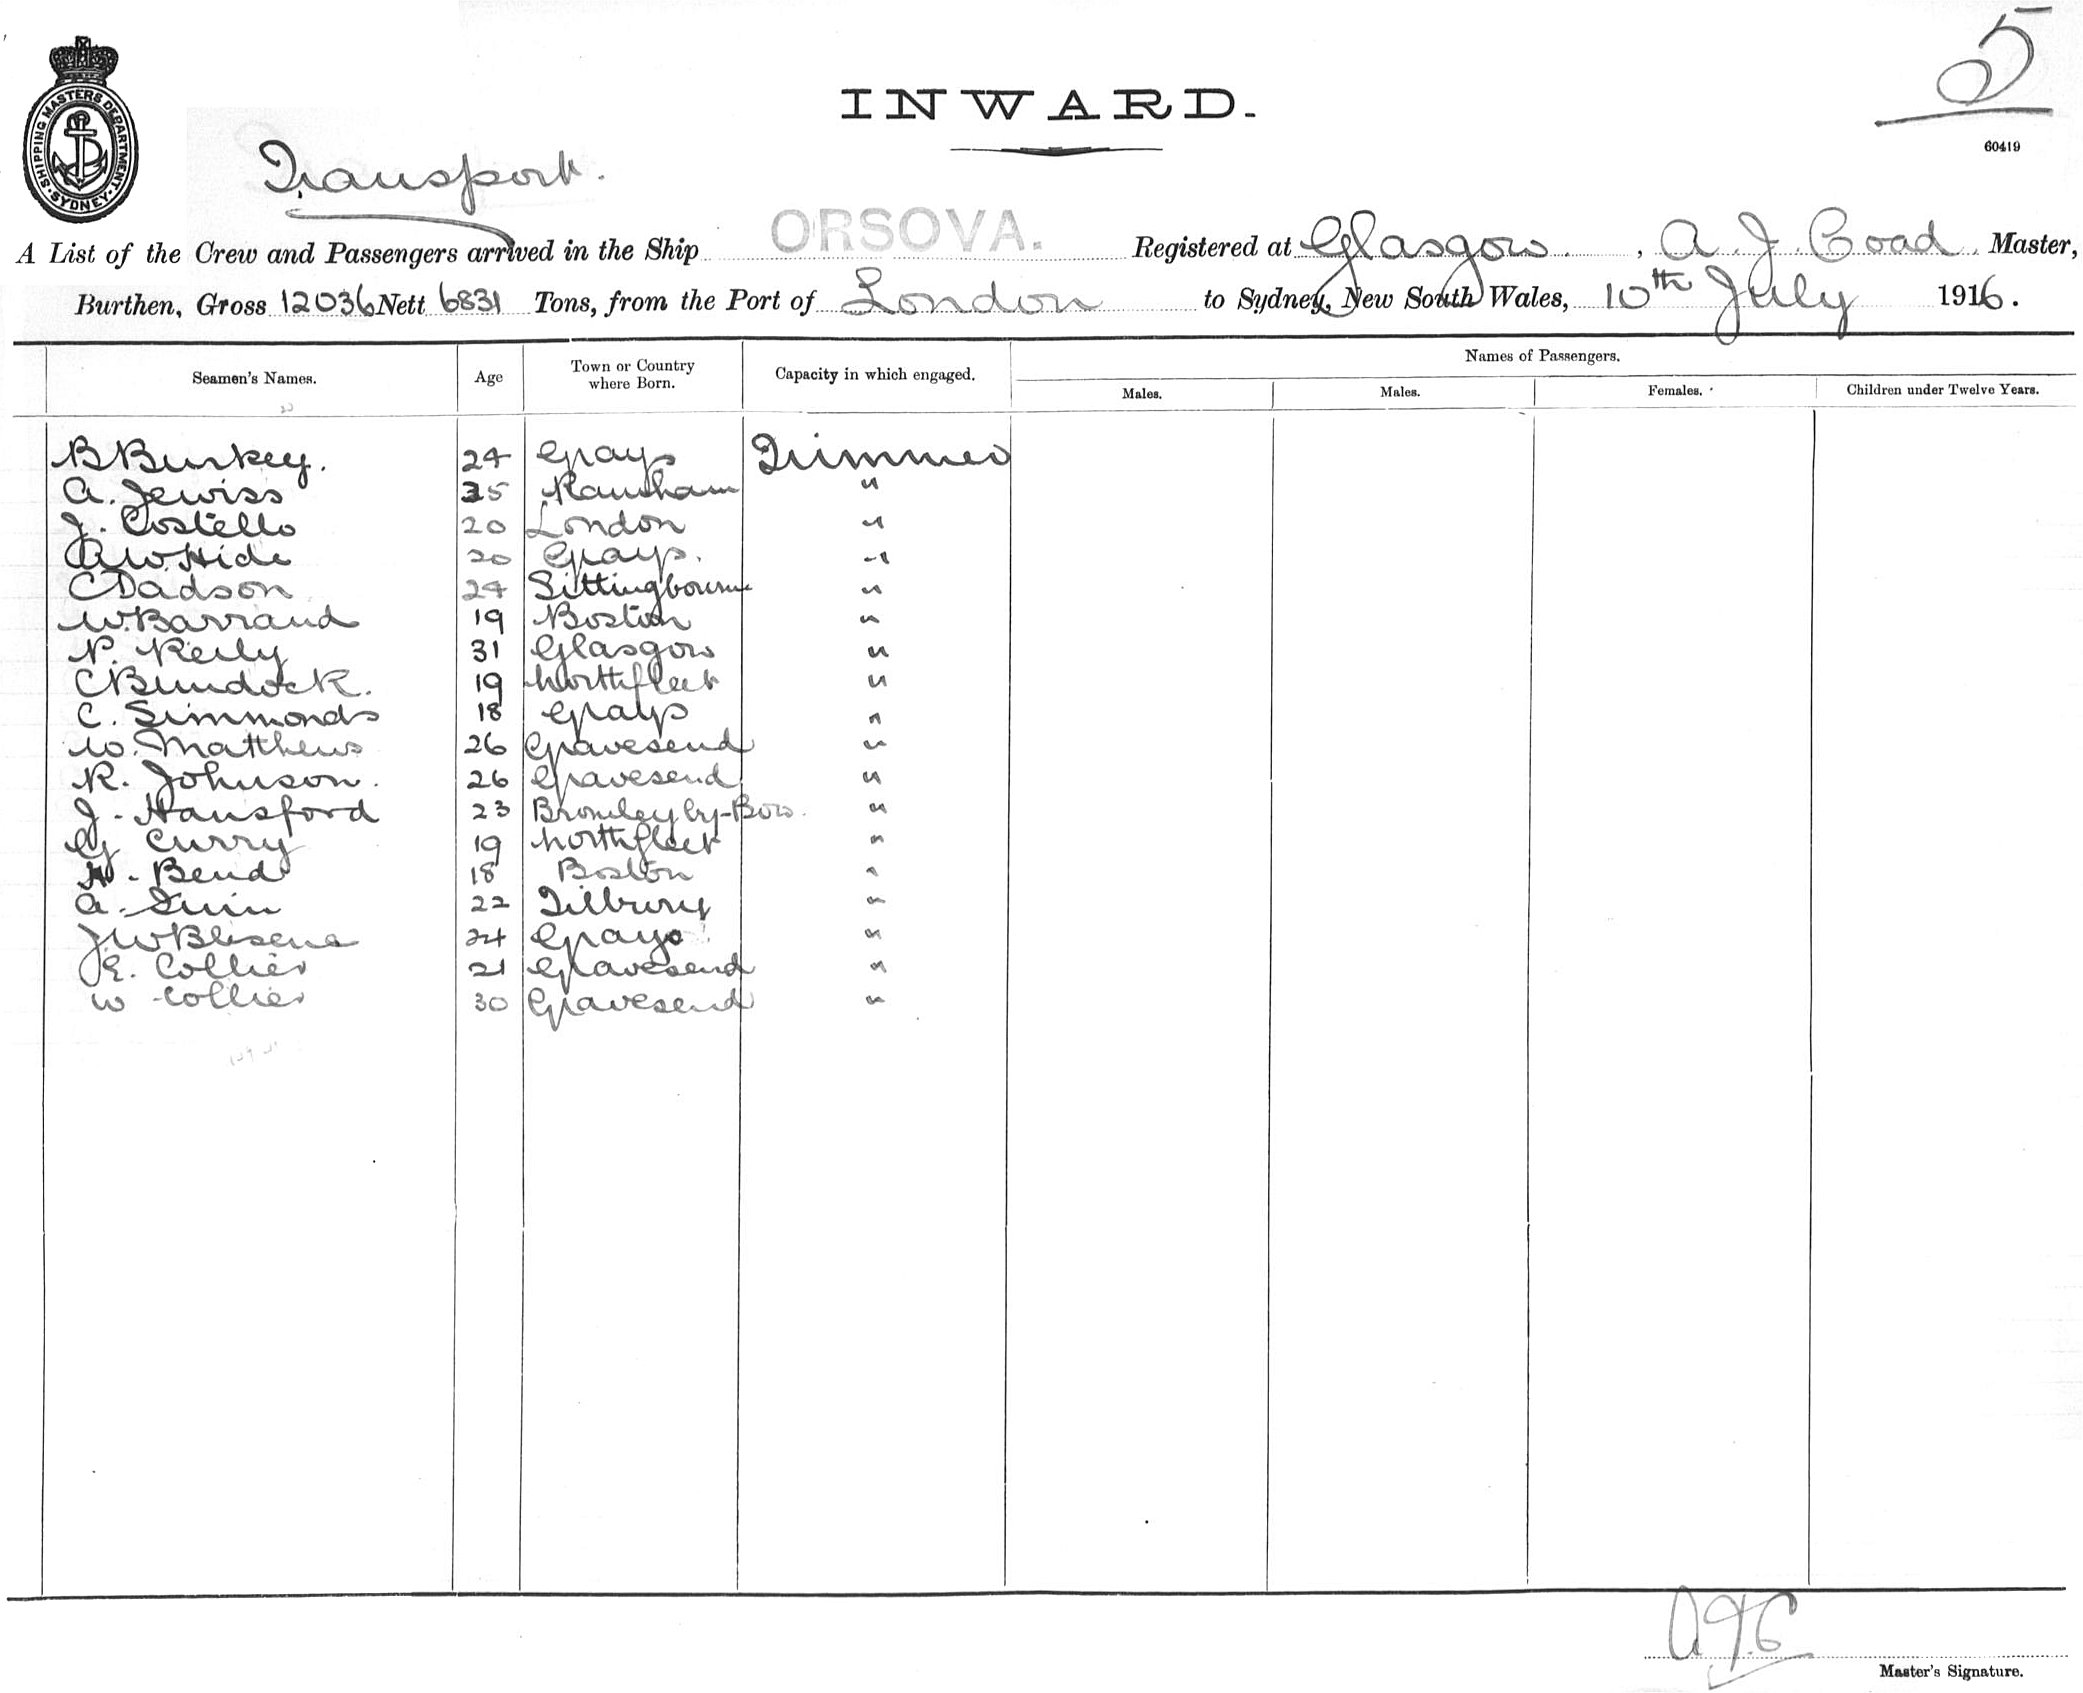 5
INWARD.
60419
SHIPPING MASTERS DEPARTMENT SYDNEY
Transport.
A List of the Crew and Passengers arrived in the Ship ORSOVA. Registered at Glasgow, A. J. Coad, Master,
Burthen, Gross 12036 Nett 6831 Tons, from the Port of London to Sydney, New South Wales, 10th July 1916.
Seamen's Names. Age Town or Country where Born. Capacity in which engaged. Names of Passengers.
Males. Males. Females. Children under Twelve Years.
B Burkey. 24 Grays Trimmer
A. Jewiss 25 Rainham "
J. Costello 20 London "
A W. Hide 20 Grays. "
C Dadson 24 Sittingbourne "
W. Barrand 19 Boston "
P. Reily 31 Glasgow "
C Burdock. 19 Northfleet "
C. Simmonds 18 Grays "
W. Matthews 26 Gravesend "
R. Johnson. 26 Gravesend "
J. Hansford 23 Bromley by-Bow. "
G Curry 19 Northfleet "
Bend 18 Boston "
A. 22 Tilbury "
J. W 24 Grays "
E. Collier 21 Gravesend "
W Collier 30 Gravesend "
A J C
Master's Signature.